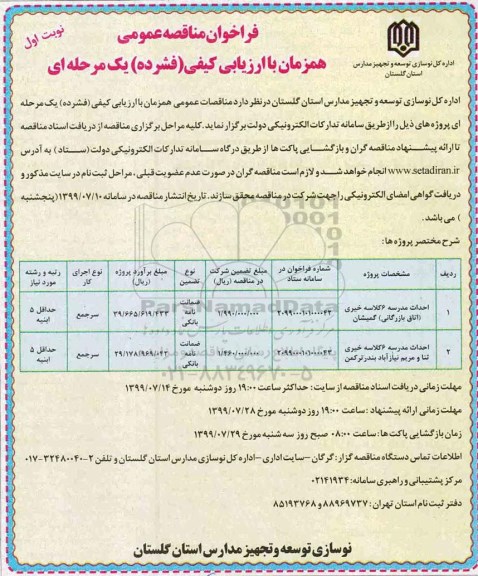 نوبت اول
فراخوان مناقصه عمومی
همزمان با ارزیابی کیفی(فشرده) یک مرحله ای
اداره کل نوسازی توسعه و تجهیز مدارس
استان گلستان
اداره کل نوسازی توسعه و تجهیز مدارس استان گلستان درنظر دارد مناقصات عمومی همزمان با ارزیابی کیفی (فشرده) یک مرحله
ای پروژه های ذیل را از طریق سامانه تدارکات الکترونیکی دولت برگزار نماید. کلیه مراحل برگزاری مناقصه از دریافت اسناد مناقصه
تا ارائه پیشنهاد مناقصه گران و بازگشایی پاکت ها از طریق درگاه سامانه تدارکات الکترونیکی دولت (ستاد) به آدرس
www.setadiran.ir انجام خواهد شد و لازم است مناقصه گران در صورت عدم عضویت قبلی، مراحل ثبت نام در سایت مذکور و
دریافت گواهی امضای الکترونیکی را جهت شرکت در مناقصه محقق سازند. تاریخ انتشار مناقصه در سامانه ۱۳۹۹/۰۷/۱۰(پنجشنبه
) می باشد.
شرح مختصر پروژه ها:
ردیف	مشخصات پروژه	شماره فراخوان در سامانه ستاد	مبلغ تضمین شرکت در مناقصه (ریال)	نوع تضمین	مبلغ برآورد پروژه (ریال)	نوع اجرای کار	رتبه و رشته مورد نیاز
۱	احداث مدرسه ۶کلاسه خیری (اتاق بازرگانی) گمیشان	ضمانت نامه بانکی	سرجمع	حداقل ۵ ابنیه
۲	احداث مدرسه ۶کلاسه خیری ثنا و مریم نیازآباد بندرترکمن	ضمانت نامه بانکی	سرجمع	حداقل ۵ ابنیه
مهلت زمانی دریافت اسناد مناقصه از سایت: حداکثر ساعت ۱۹:۰۰ روز دوشنبه مورخ ۱۳۹۹/۰۷/۱۴
مهلت زمانی ارائه پیشنهاد: ساعت ۱۹:۰۰ روز دوشنبه مورخ ۱۳۹۹/۰۷/۲۸
زمان بازگشایی پاکت ها: ساعت ۰۸:۰۰ صبح روز سه شنبه مورخ ۱۳۹۹/۰۷/۲۹
اطلاعات تماس دستگاه مناقصه گزار: گرگان-سایت اداری-اداره کل نوسازی مدارس استان گلستان و تلفن ۲-۰۱۷-۳۲۴۸۰۰۴۰
مرکز پشتیبانی و راهبری سامانه: ۰۲۱۴۱۹۳۴
دفتر ثبت نام استان تهران: ۸۸۹۶۹۷۳۷ و ۸۵۱۹۳۷۶۸
نوسازی توسعه و تجهیز مدارس استان گلستان
ParsNamadData
۰۲۱-۸۸۳۴۹۶۷۰-۵